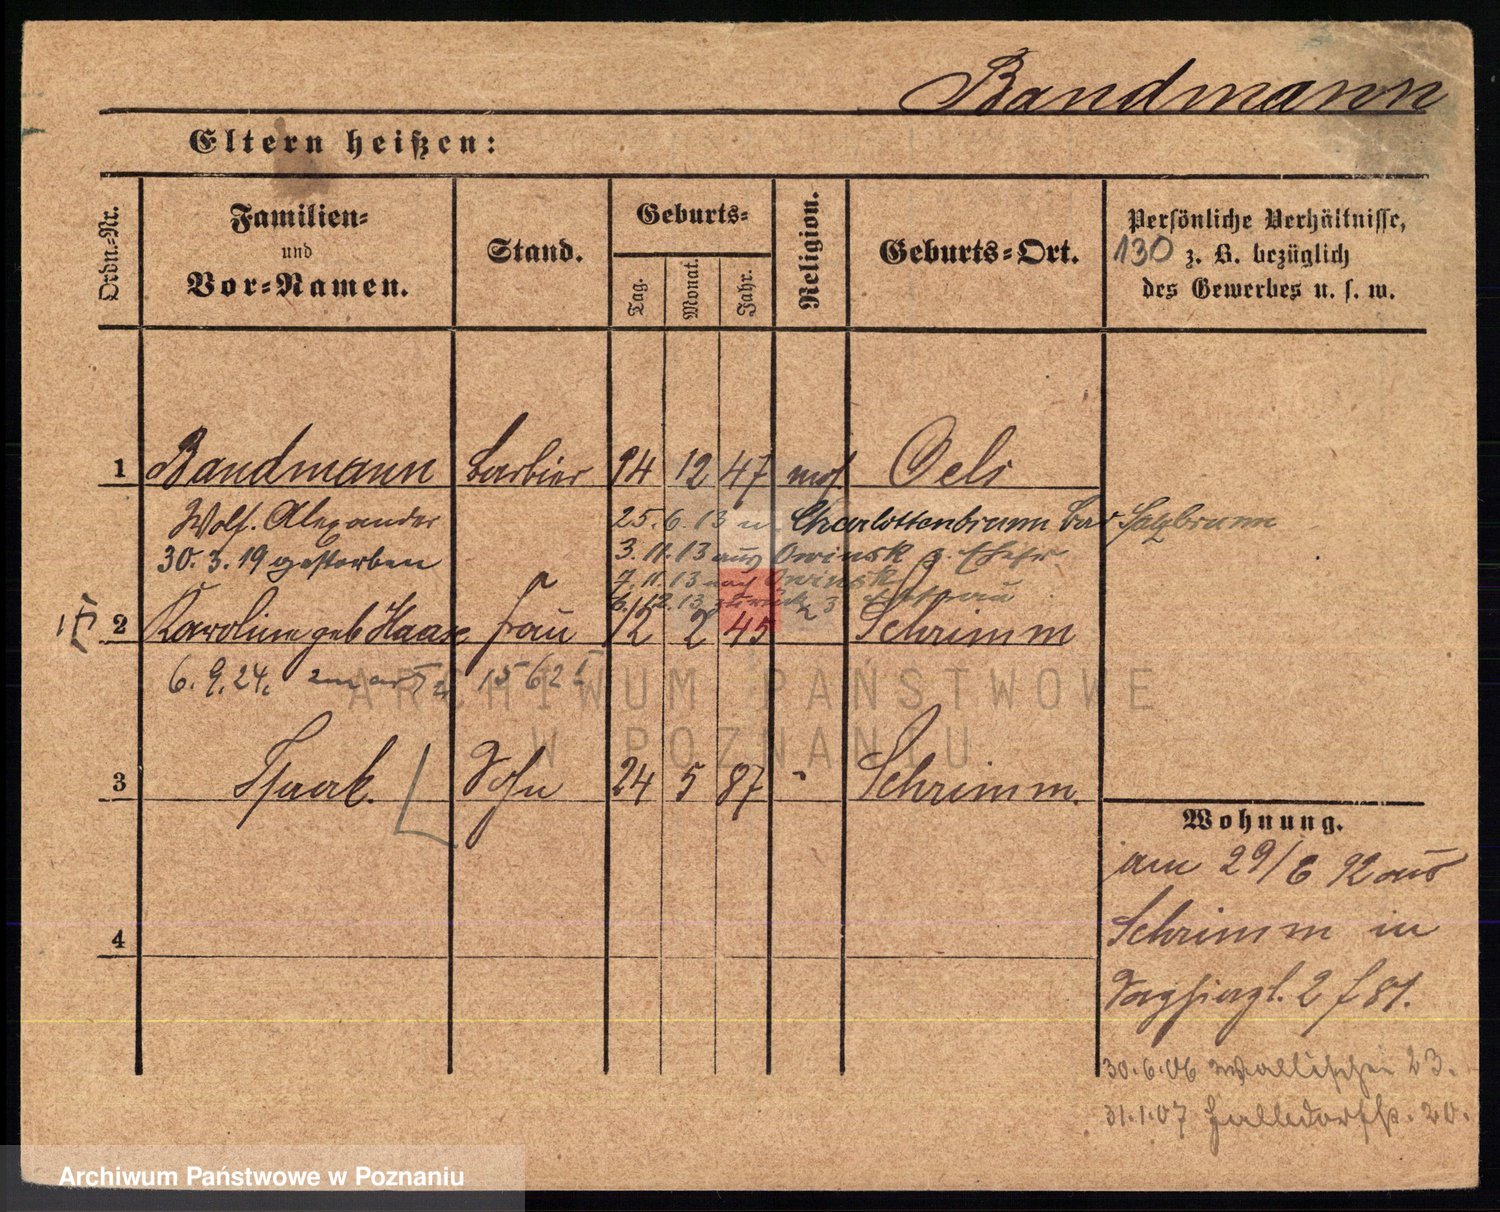 Bandmann
Eltern heißen:
Ordn.=Nr.
Familien=
und
Vor=Namen.
Stand.
Geburts=
Tag.
Monat.
Jahr.
Religion.
Geburts=Ort.
Persönliche Verhältnisse,
130 z. B. bezüglich
des Gewerbes u. s. w.
1 Bandmann Barbier 14 12 47 mos. Oels
Wolf. Alexander 25.6.13 n Charlottenbrunn Salzbrunn
30.3.19 gestorben 3.11.13 aus Owinsk
7.11.13 nach Owinsk
6.12.13 zurück
2 Karoline geb Haase Frau 12 2 45 Schrimm
6.9.24.
3 Isaak. Sohn 24 5 87 " Schrimm.
4
Wohnung.
am 29/6 92 aus
Schrimm in
2
30.6.06 Wallischei 23.
31.1.07 20.
ARCHIWUM PAŃSTWOWE
W POZNANIU
Archiwum Państwowe w Poznaniu